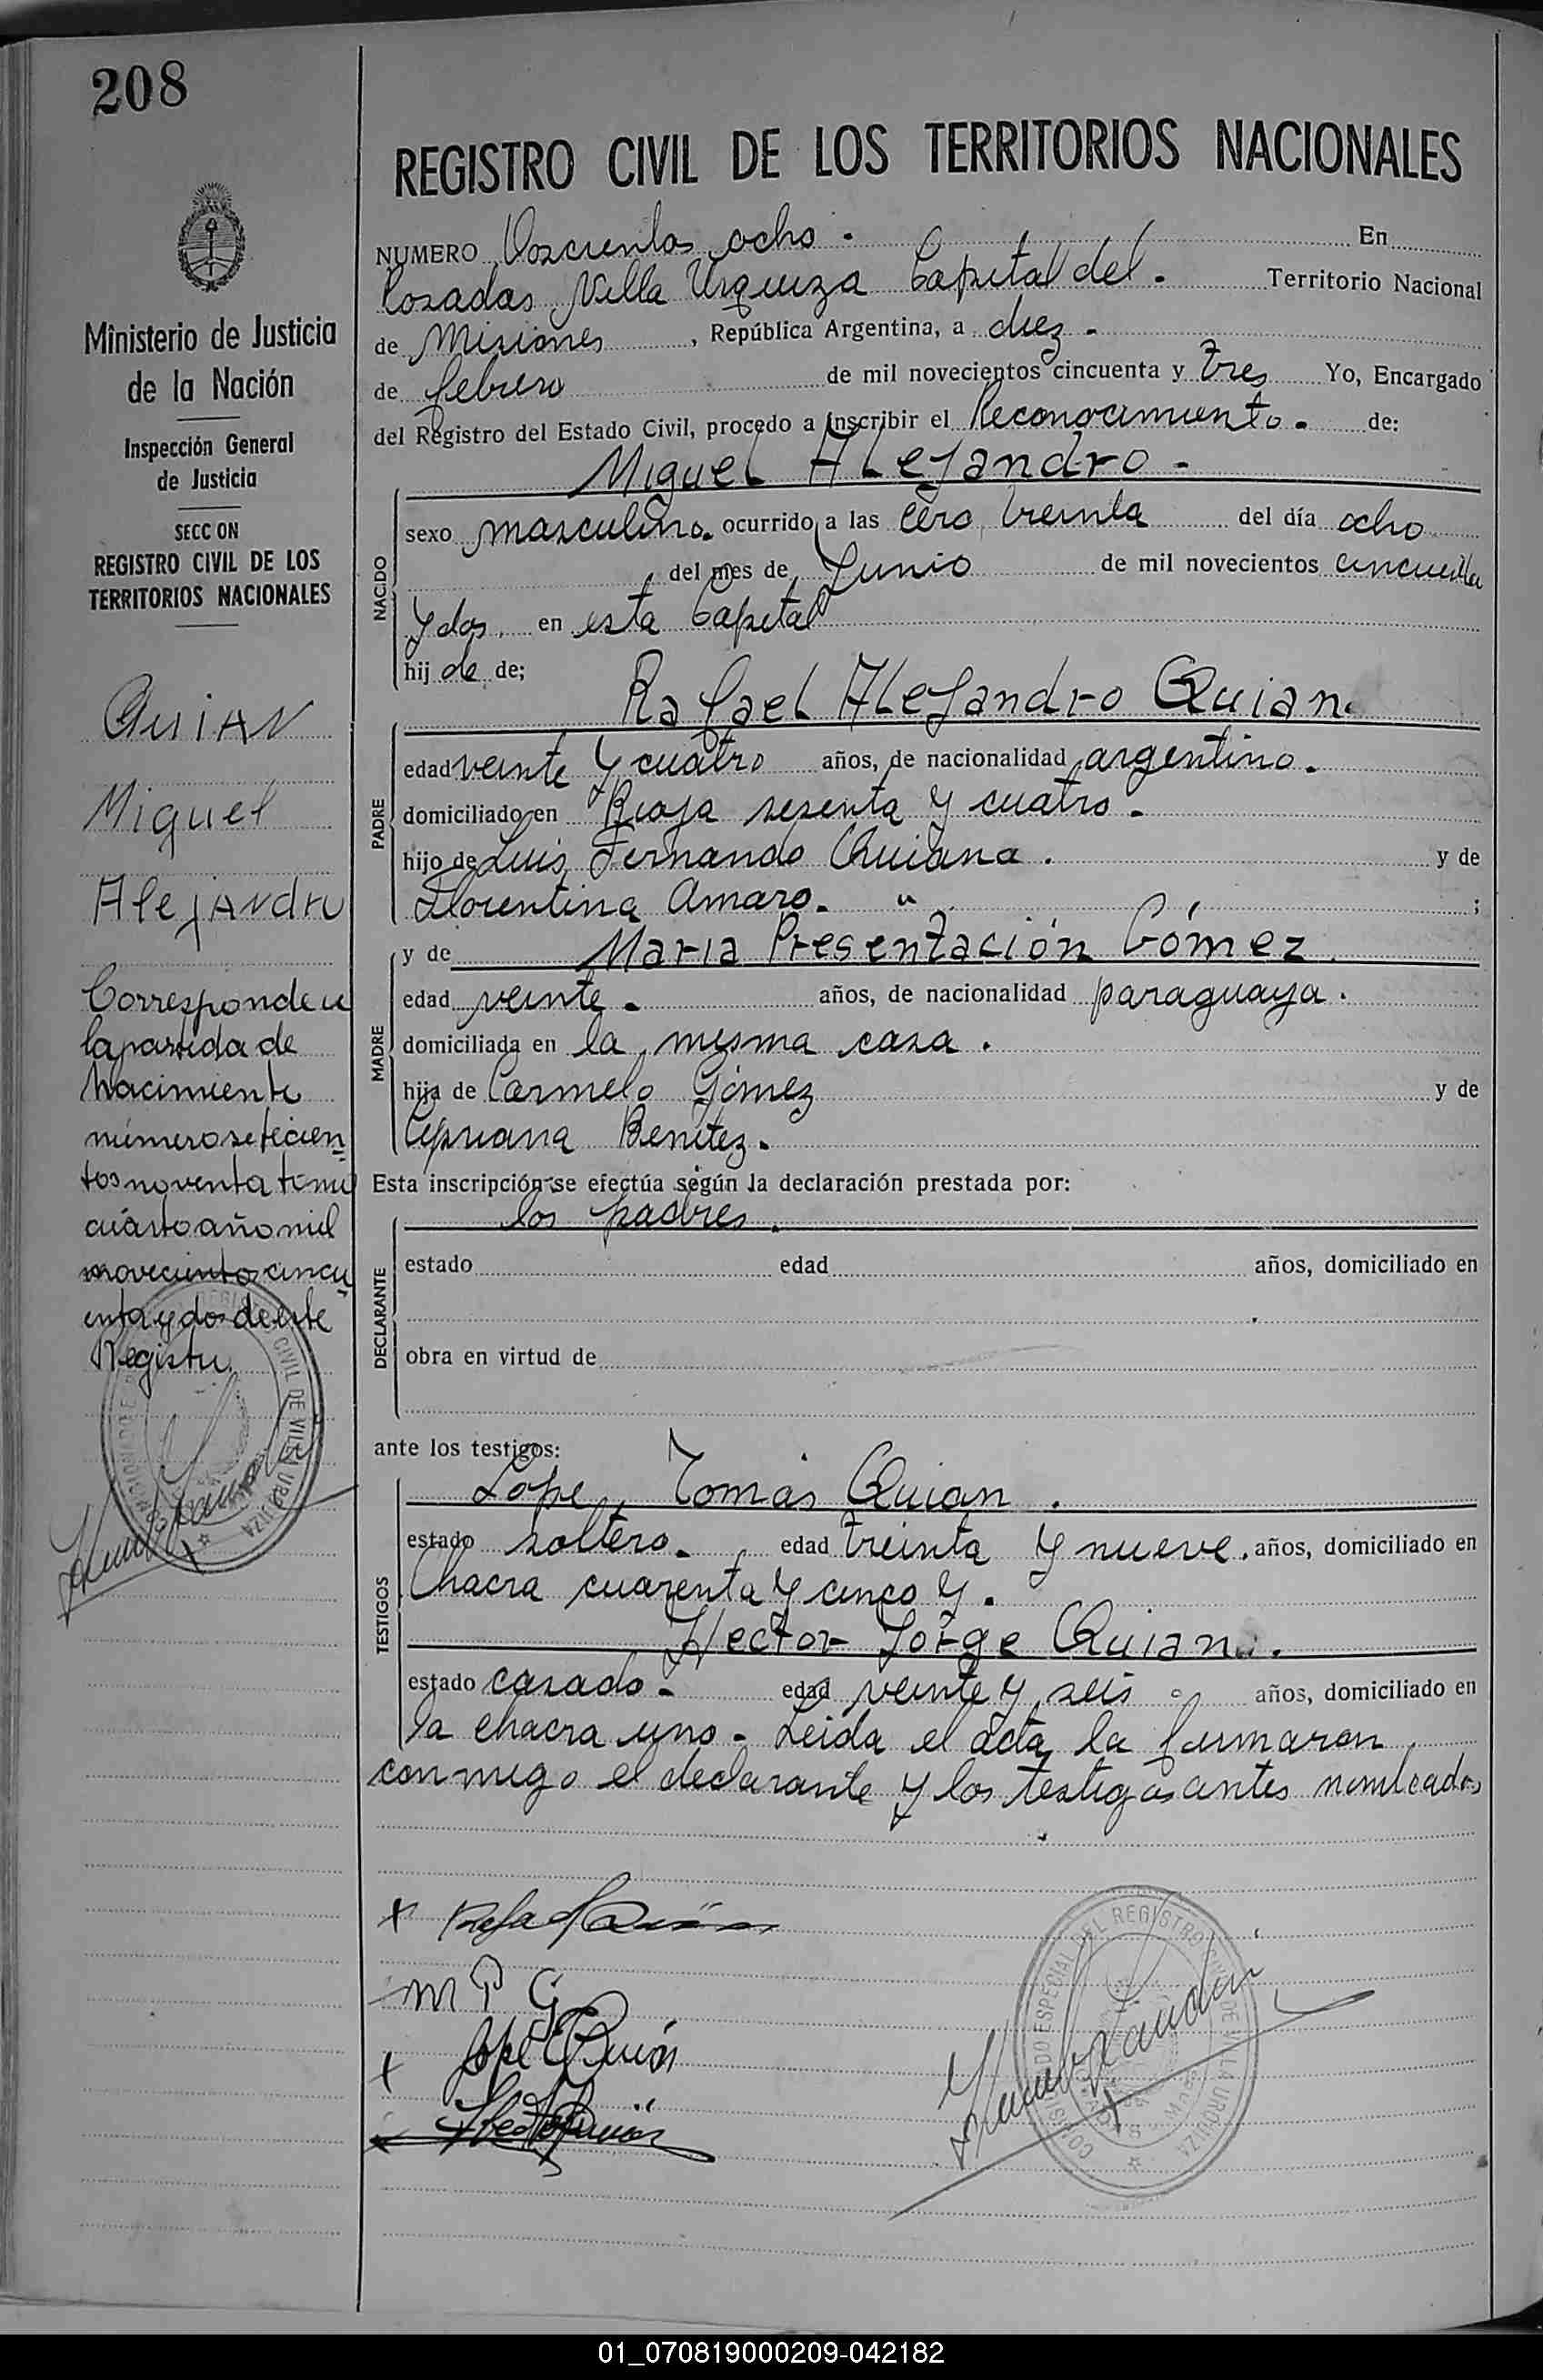 208
Ministerio de Justicia
de la Nación
Inspección General
de Justicia
SECC ON
REGISTRO CIVIL DE LOS
TERRITORIOS NACIONALES
Quian
Miguel
Alejandro
Corresponde a
la partida de
Nacimiento
número setecien
tos noventa tomo
cuarto año mil
novecientos cincu
enta y dos de este
Registro
REGISTRO CIVIL DE LOS TERRITORIOS NACIONALES
NUMERO Doscientos ocho. En
Posadas Villa Urquiza Capital del. Territorio Nacional
de Misiones, República Argentina, a diez -
de febrero de mil novecientos cincuenta y tres Yo, Encargado
del Registro del Estado Civil, procedo a inscribir el Reconocimiento. de:
Miguel Alejandro -
NACIDO
sexo masculino. ocurrido a las cero treinta del día ocho
del mes de Junio de mil novecientos cincuenta
y dos. en esta Capital
hij de de;
Rafael Alejandro Quian.
PADRE
edad veinte y cuatro años, de nacionalidad argentino.
domiciliado en Rioja sesenta y cuatro -
hijo de Luis Fernando Quiana. y de
Florentina Amaro. " ;
y de Maria Presentación Gómez.
MADRE
edad veinte. años, de nacionalidad paraguaya.
domiciliada en la misma casa.
hija de Carmelo Gómez y de
Cipriana Benitez.
Esta inscripción se efectúa según la declaración prestada por:
los padres.
DECLARANTE
estado edad años, domiciliado en
obra en virtud de
ante los testigos:
Lope Tomás Quian.
TESTIGOS
estado soltero. edad treinta y nueve. años, domiciliado en
Chacra cuarenta y cinco y.
Hector Jorge Quian.
estado casado - edad veinte y seis años, domiciliado en
la chacra uno - Leida el acta la firmaron
conmigo el declarante y los testigos antes nombrados
M P G
Lope T Quian
COMISIONADO ESPECIAL DEL REGISTRO CIVIL DE VILLA URQUIZA
01_070819000209-042182